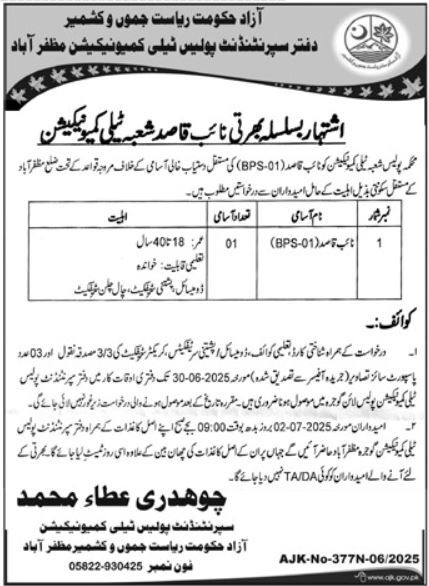 آزاد حکومت ریاست جموں و کشمیر
دفتر سپرنٹنڈنٹ پولیس ٹیلی کمیونیکیشن مظفر آباد
اشتہار بسلسلہ بھرتی نائب قاصد شعبہ ٹیلی کمیونیکیشن
محکمہ پولیس شعبہ ٹیلی کمیونیکیشن کو نائب قاصد (BPS-01) کی مستقل دستیاب خالی آسامی کے خلاف مروجہ قواعد کے تحت ضلع مظفر آباد
کے مستقل سکونتی بذیل اہلیت کے حامل امیدواران سے درخواستیں مطلوب ہیں۔
نمبر شمار نام آسامی تعداد آسامی اہلیت
1 نائب قاصد (BPS-01) 01 عمر: 18 تا 40 سال
تعلیمی قابلیت: خواندہ
ڈومیسائل، پشتنی سرٹیفکیٹ، چال چلن سرٹیفکیٹ
کوائف:۔
۱۔ درخواست کے ہمراہ شناختی کارڈ، تعلیمی کوائف، ڈومیسائل/پشتنی سرٹیفکیٹس، کریکٹر سرٹیفکیٹ کی 3/3 مصدقہ نقول اور 03 عدد
پاسپورٹ سائز تصاویر (جریدہ آفیسر سے تصدیق شدہ) مورخہ 30-06-2025 تک دفتری اوقات کار میں دفتر سپرنٹنڈنٹ پولیس
ٹیلی کمیونیکیشن پولیس لائن گوجرہ میں موصول ہونا ضروری ہیں۔ مقررہ تاریخ کے بعد موصول ہونے والی درخواست زیر غور نہیں لائی جائے گی۔
۲۔ امیدواران مورخہ 02-07-2025 بروز بدھ بوقت 09:00 بجے صبح اپنے اصل کاغذات کے ہمراہ دفتر سپرنٹنڈنٹ پولیس
ٹیلی کمیونیکیشن گوجرہ مظفر آباد حاضر آئیں گے جہاں پر ان کے اصل کاغذات کی چھان بین کے علاوہ اسی روز ٹیسٹ لیا جائے گا۔ بھرتی کے
لئے آنے والے امیدواران کو کوئی TA/DA نہیں دیا جائے گا۔
چوھدری عطاء محمد
سپرنٹنڈنٹ پولیس ٹیلی کمیونیکیشن
آزاد حکومت ریاست جموں و کشمیر مظفر آباد
فون نمبر 05822-930425
AJK-No-377N-06/2025
www.ajk.gov.pk